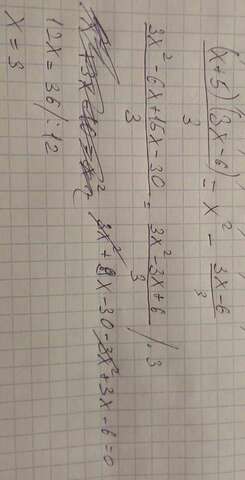 (x+5)(3x-6)/3 = x² - (3x-6)/3
(3x²-6x+15x-30)/3 = (3x²-3x+6)/3 /·3
3x²+9x-30-3x²+3x-6=0
12x=36/:12
x=3